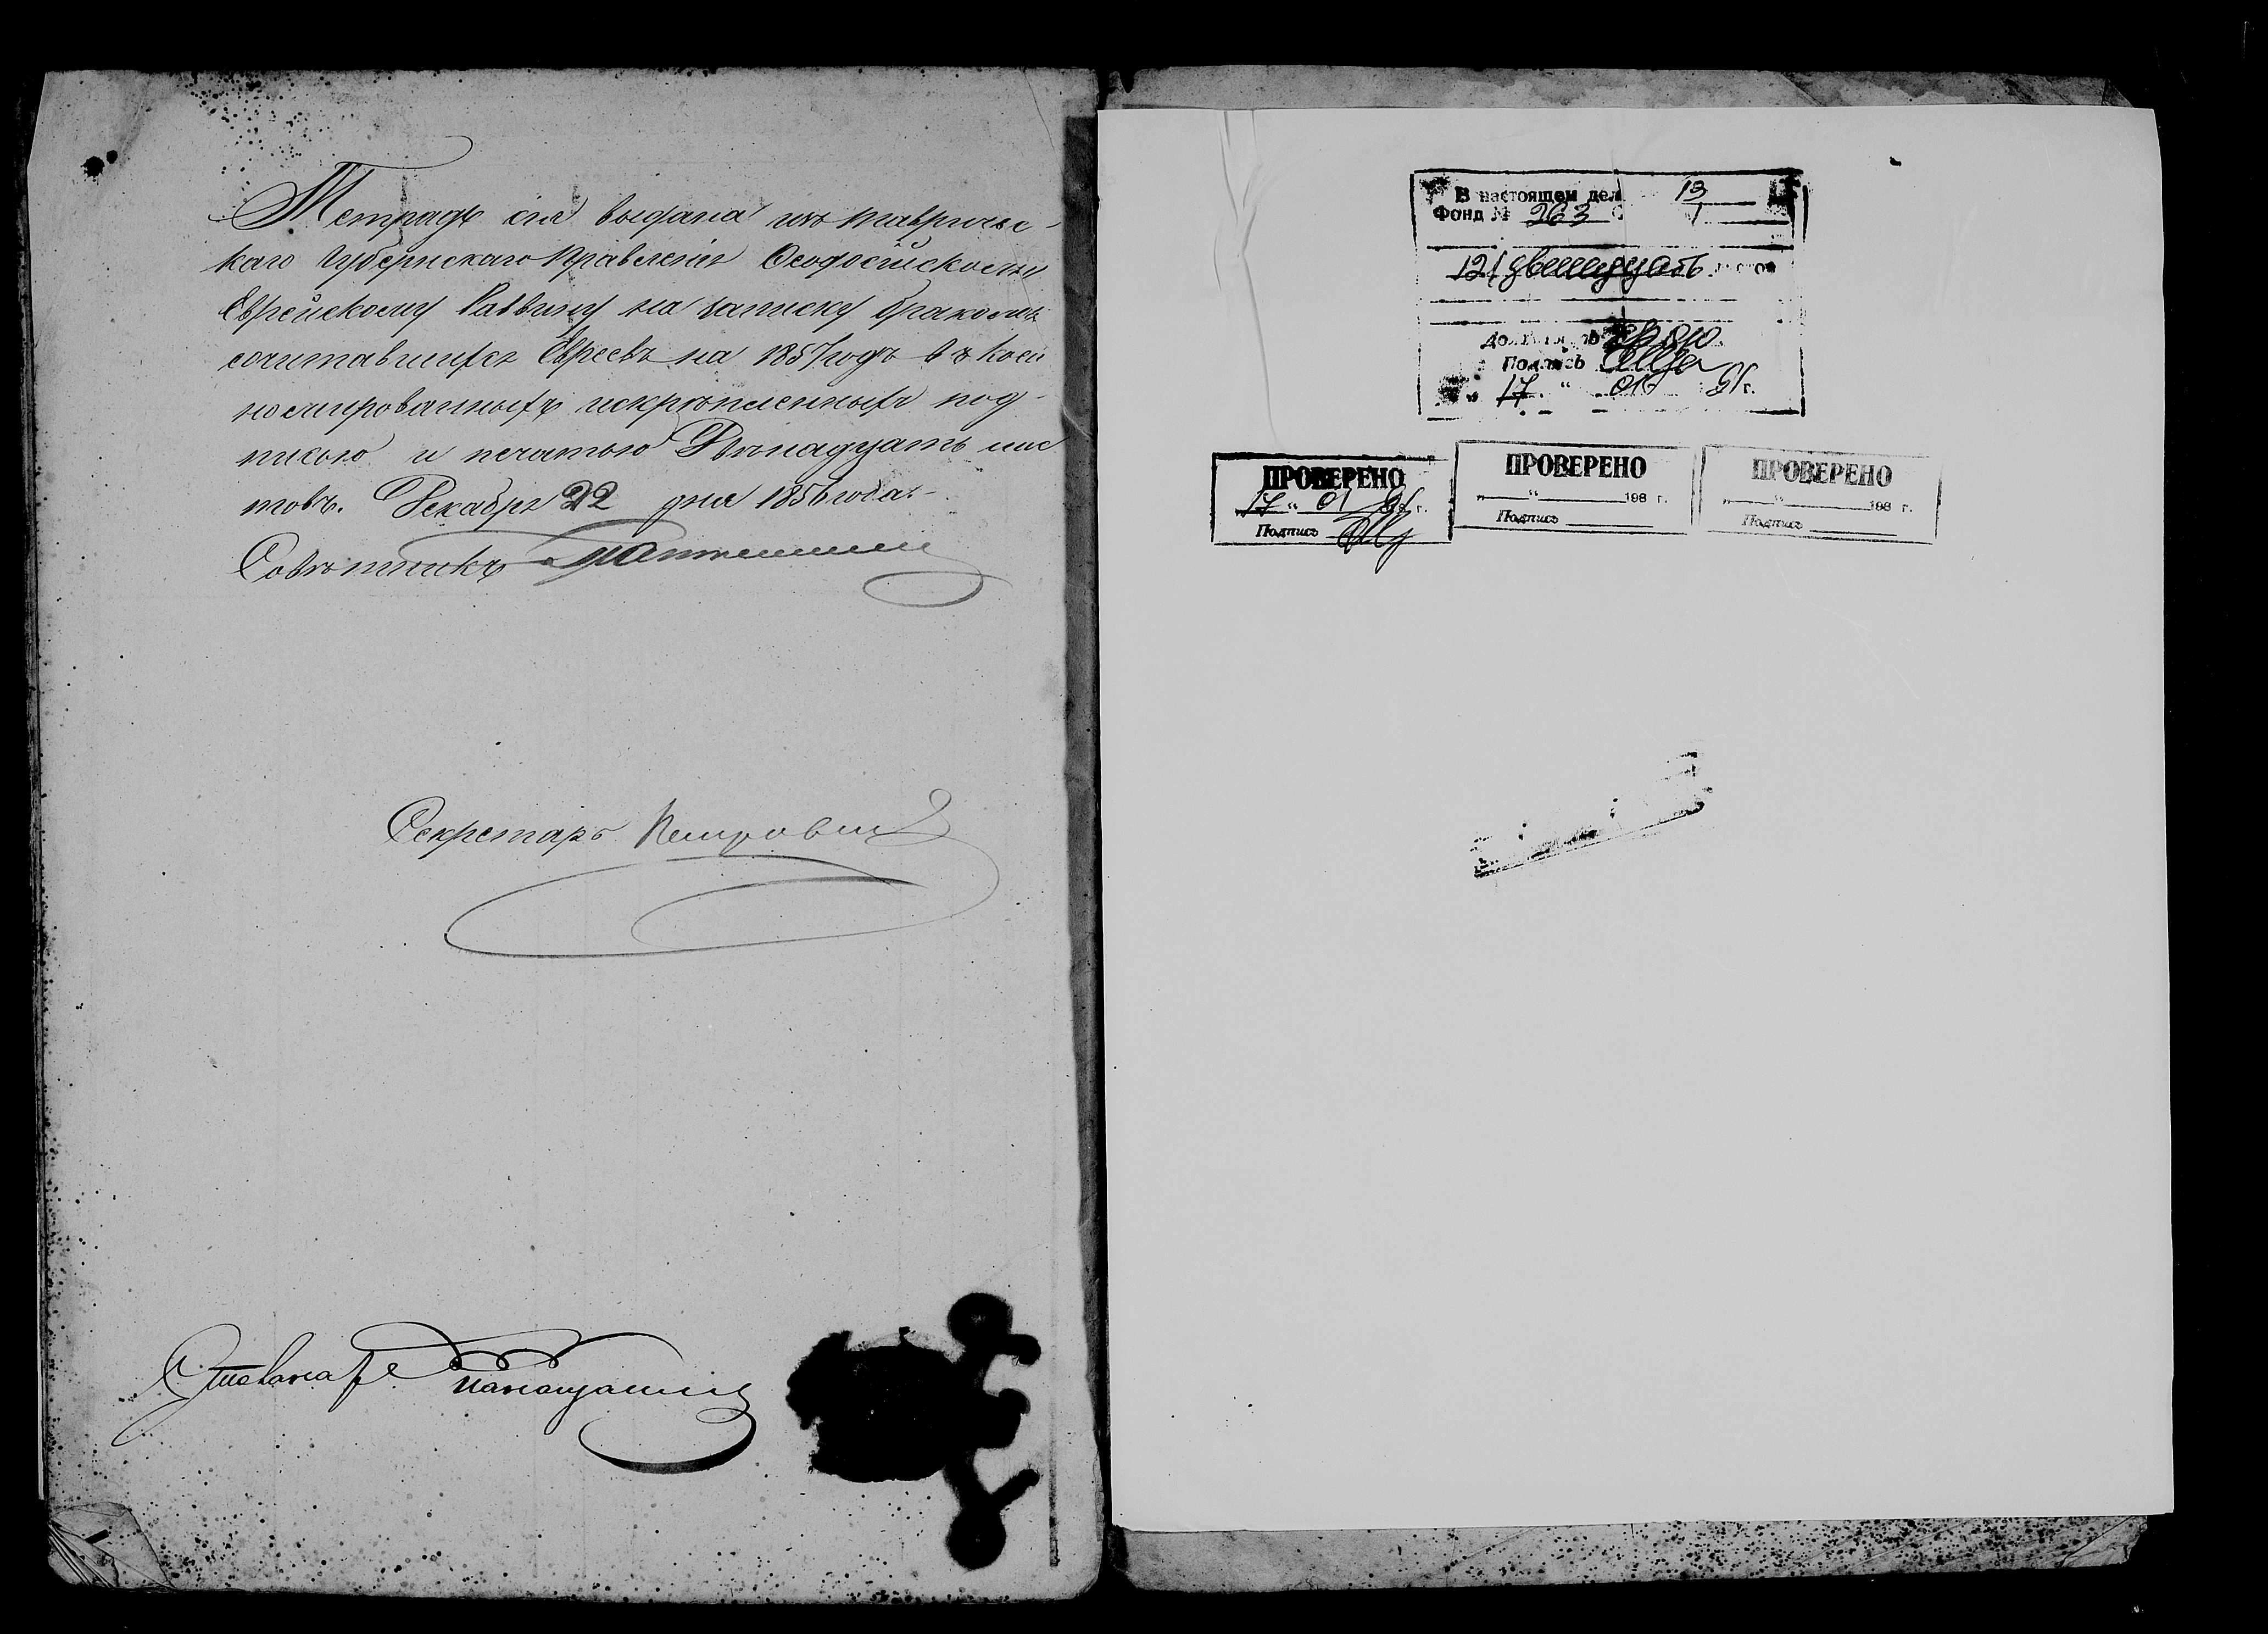 Тетрадь сія выдана изъ Тавричес-
каго Губернскаго Правленія Ѳеодосійскому
Еврейскому Раввину на записку бракомъ
сочитавшихся Евреевъ на 1857 годъ въ коей
номированныхъ искрѣпленныхъ под-
писью и печатью Двѣнадцать лис
товъ. Декабря 22 дня 1856 года.-
Совѣтникъ
Секретарь Петрович
В настоящем дел 13
Фонд № 263 1
12 (двенадцать листов
Подпись
" 17 " 01 91 г.
ПРОВЕРЕНО
" 17 " 01 91 г.
Подпись
ПРОВЕРЕНО
" " 198 г.
Подпись
ПРОВЕРЕНО
" " 198 г.
Подпись